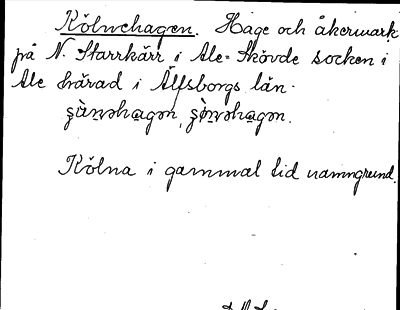 Kölnehagen. Hage och åkermark
på N. Starrkärr i Ale-Skövde socken i
Ale härad i Älfsborgs län.
Kölna i gammal tid namngrund.